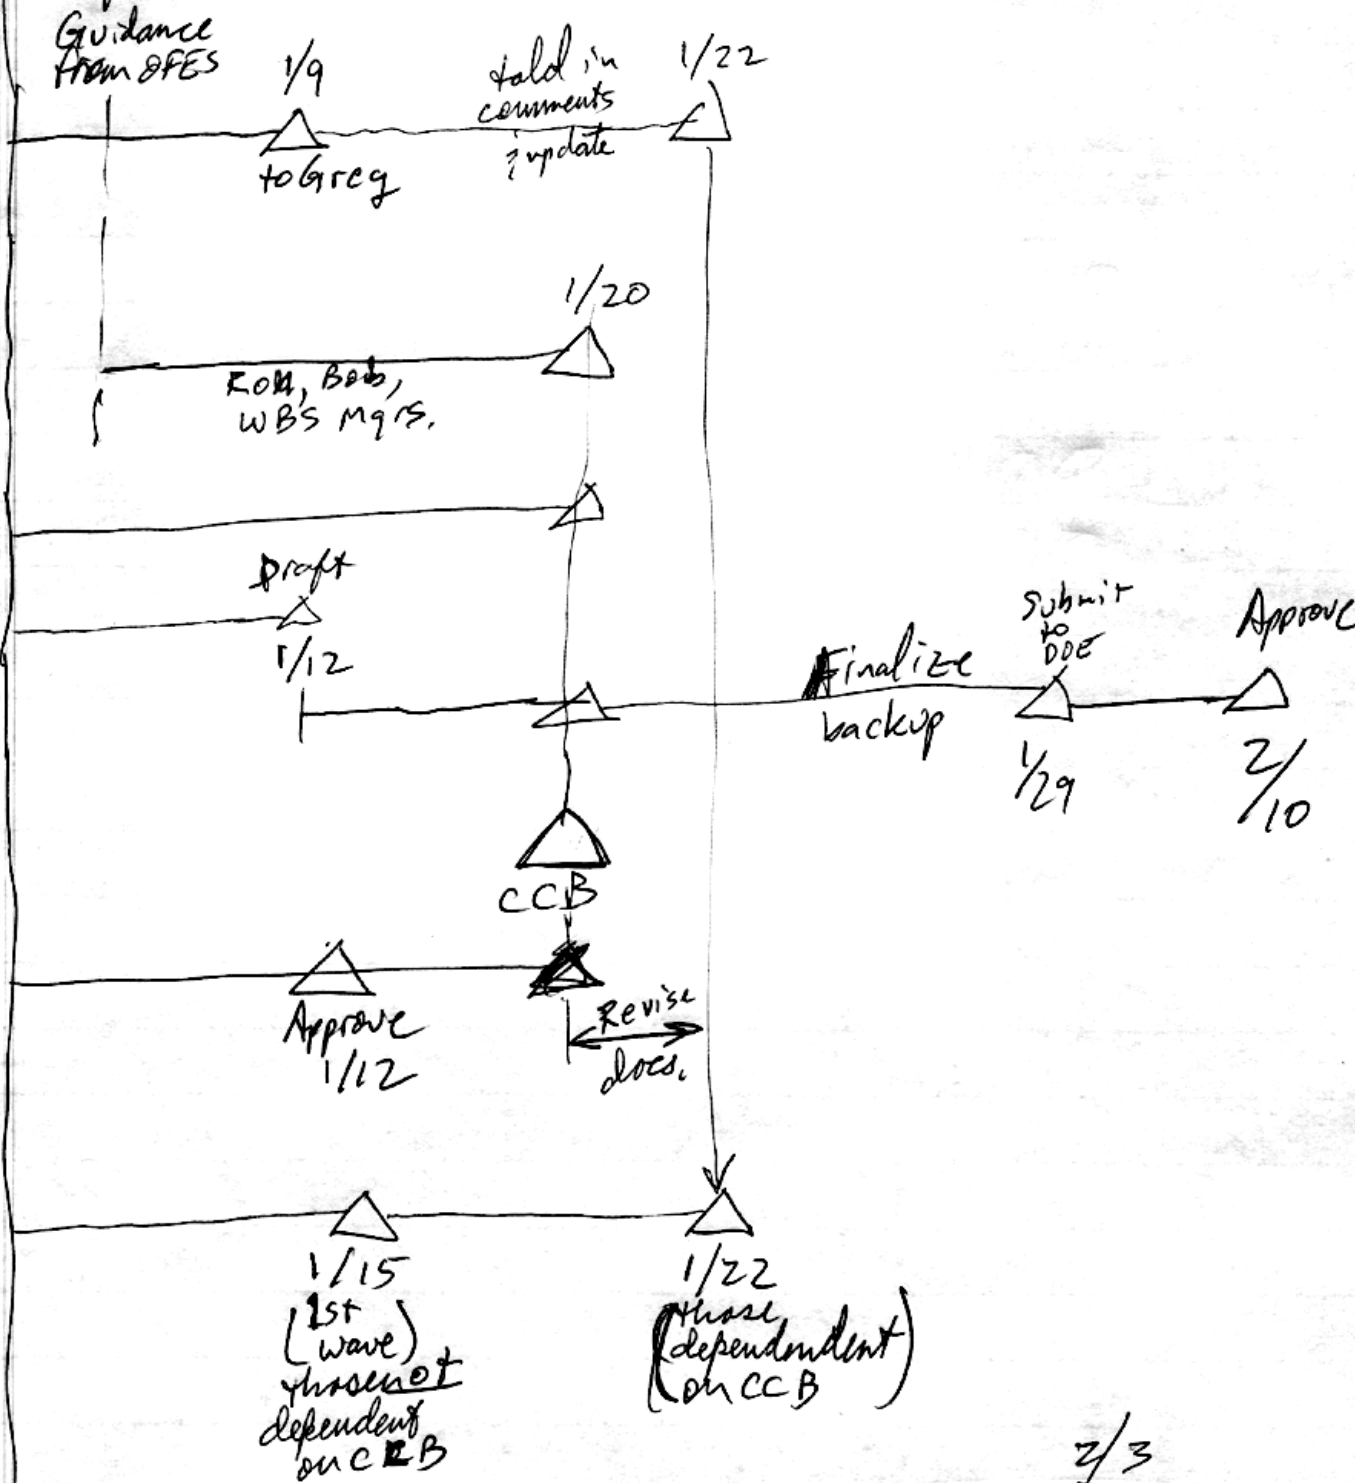 Guidance
from OFES
1/9
to Greg
fold in
comments
& update
1/22
1/20
Ron, Bob,
WBS Mgrs.
Draft
1/12
Finalize
backup
Submit
to
DOE
1/29
Approve
2/
10
CCB
Approve
1/12
Revise
docs.
1/15
(1st
wave)
those not
dependent
on CCB
1/22
(those
dependendent
on CCB)
2/3